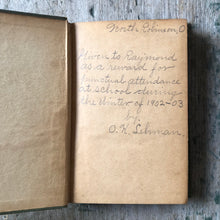 North Robinson, O.
Given to Raymond
as a reward for
punctual attendance
at school during
the Winter of 1902-03
by
O. K. Lehman.